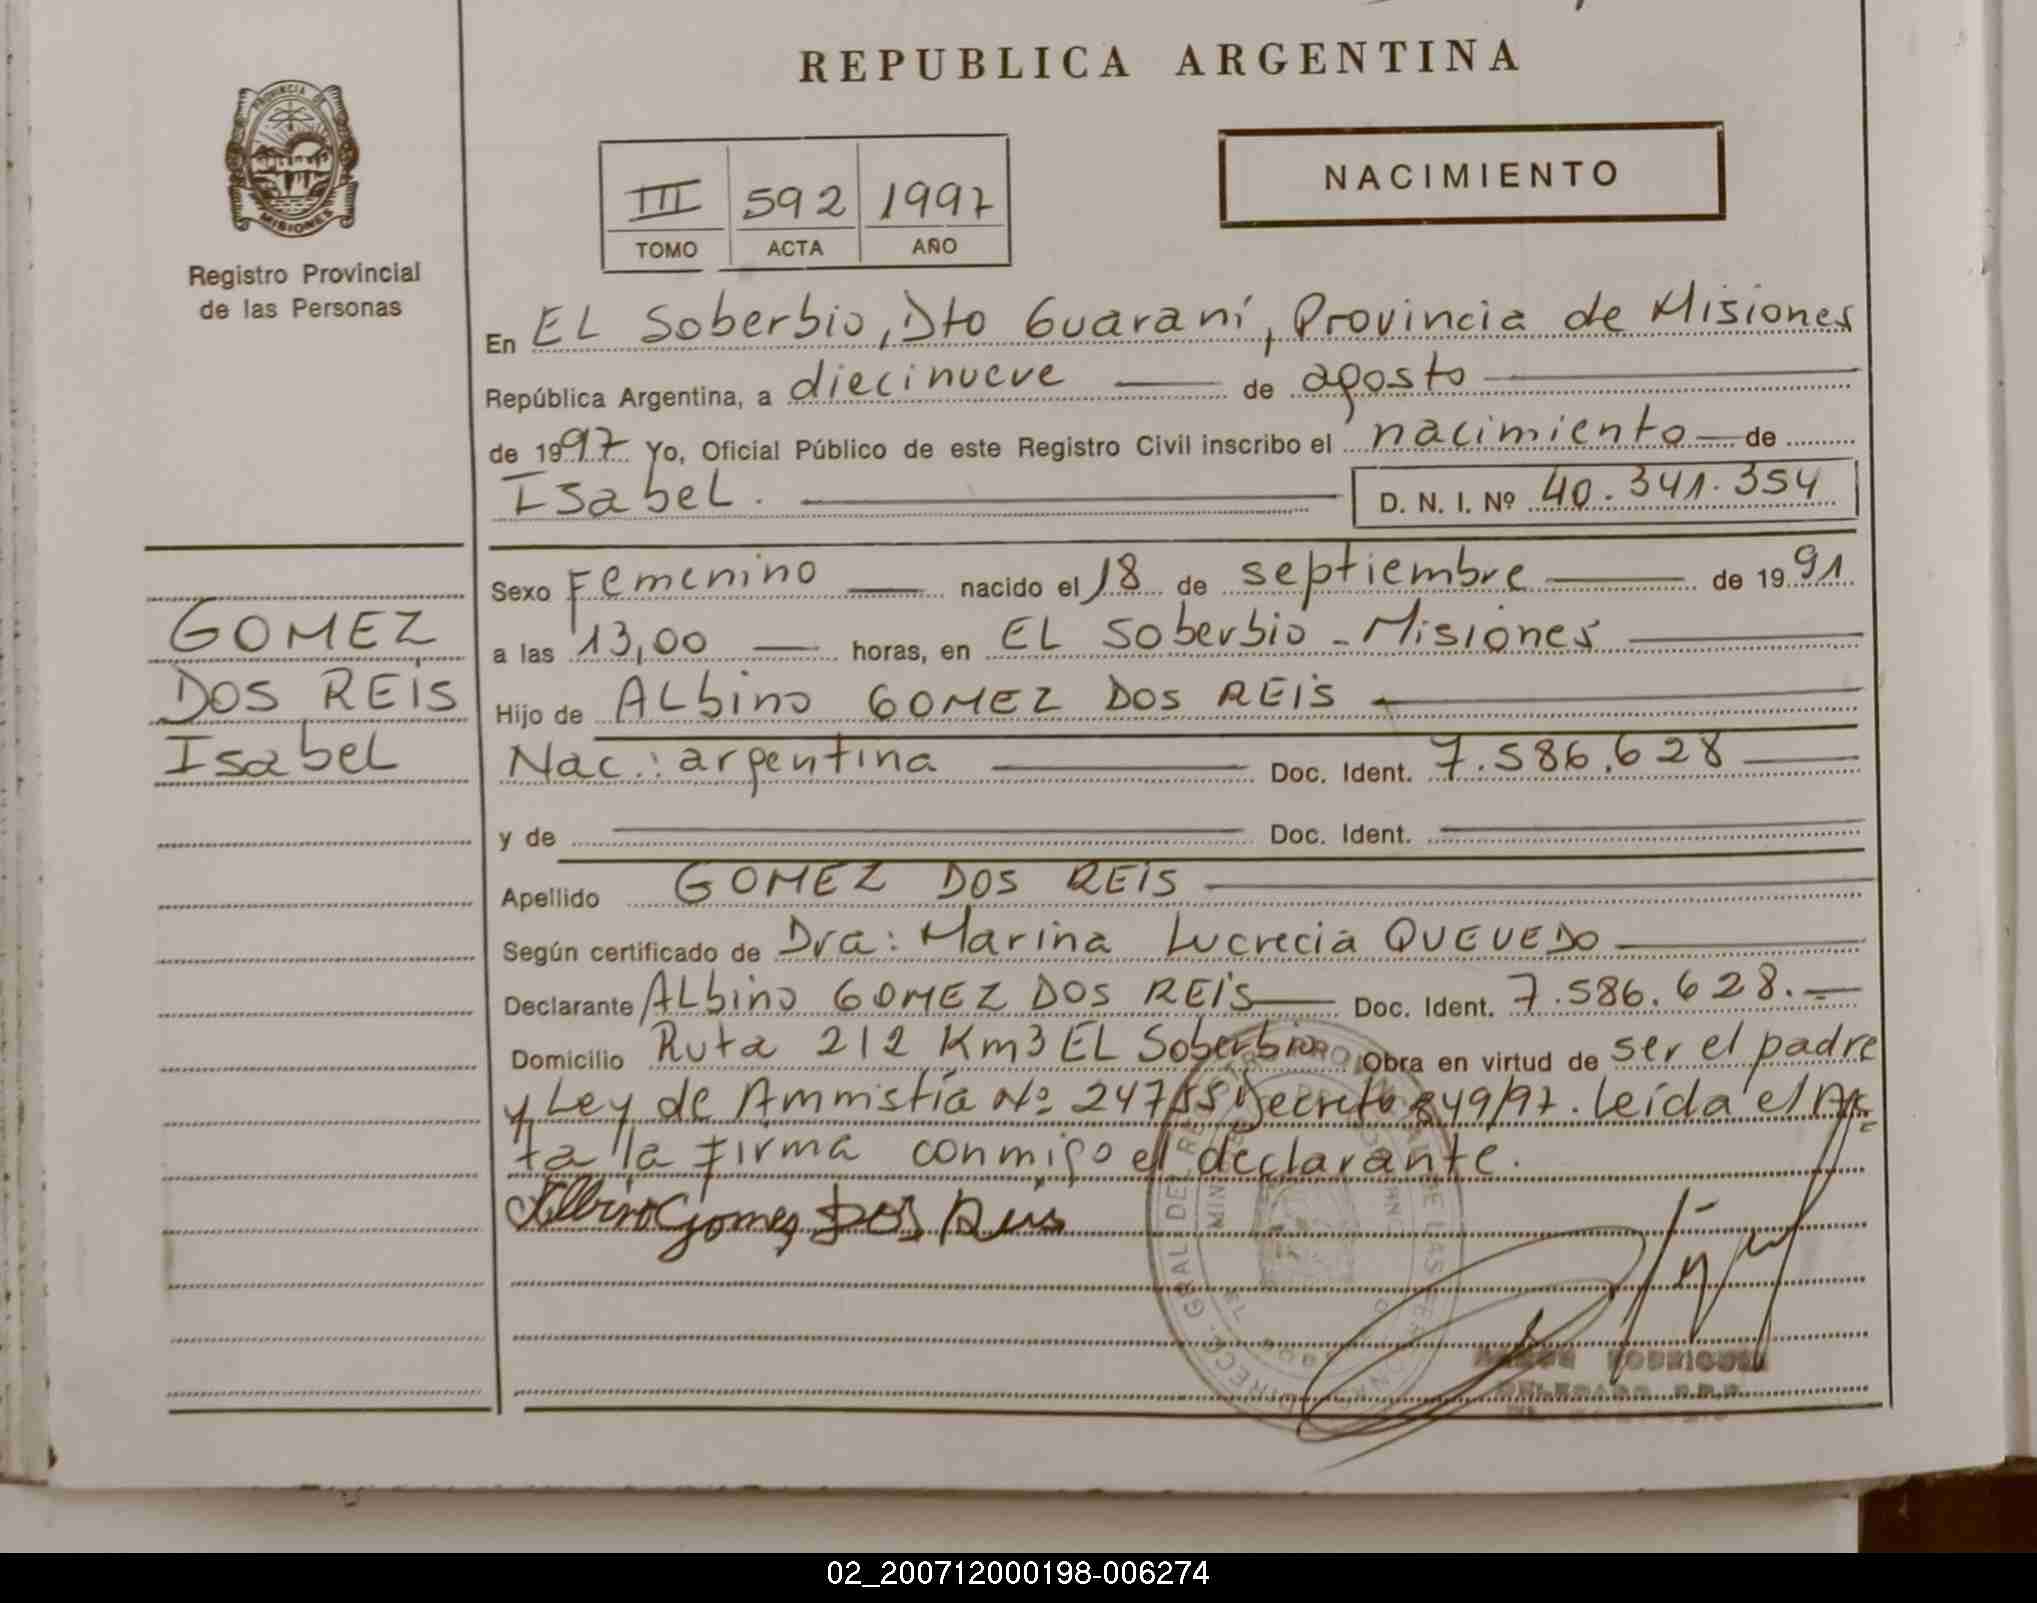 REPUBLICA ARGENTINA
PROVINCIA DE
MISIONES
Registro Provincial
de las Personas
NACIMIENTO
III 592 1997
TOMO ACTA AÑO
En EL Soberbio, Dto Guaraní, Provincia de Misiones
República Argentina, a diecinueve de agosto
de 1997 Yo, Oficial Público de este Registro Civil inscribo el nacimiento de
Isabel. D. N. I. Nº 40.341.354
GOMEZ
DOS REIS
Isabel
Sexo Femenino nacido el 18 de septiembre de 1991
a las 13,00 horas, en EL Soberbio - Misiones
Hijo de ALbino GOMEZ DOS REIS
Nac.: argentina Doc. Ident. 7.586.628
y de Doc. Ident.
Apellido GOMEZ DOS REIS
Según certificado de Dra: Marina Lucrecia QUEVEDO
Declarante ALbino GOMEZ DOS REIS Doc. Ident. 7.586.628.-
Domicilio Ruta 212 Km3 EL Soberbio Obra en virtud de ser el padre
y Ley de Ammistía Nº 24755 y Decreto 849/97. Leída el Ac-
ta la firma conmigo el declarante.
Albino Gomes Dos Reis
02_200712000198-006274